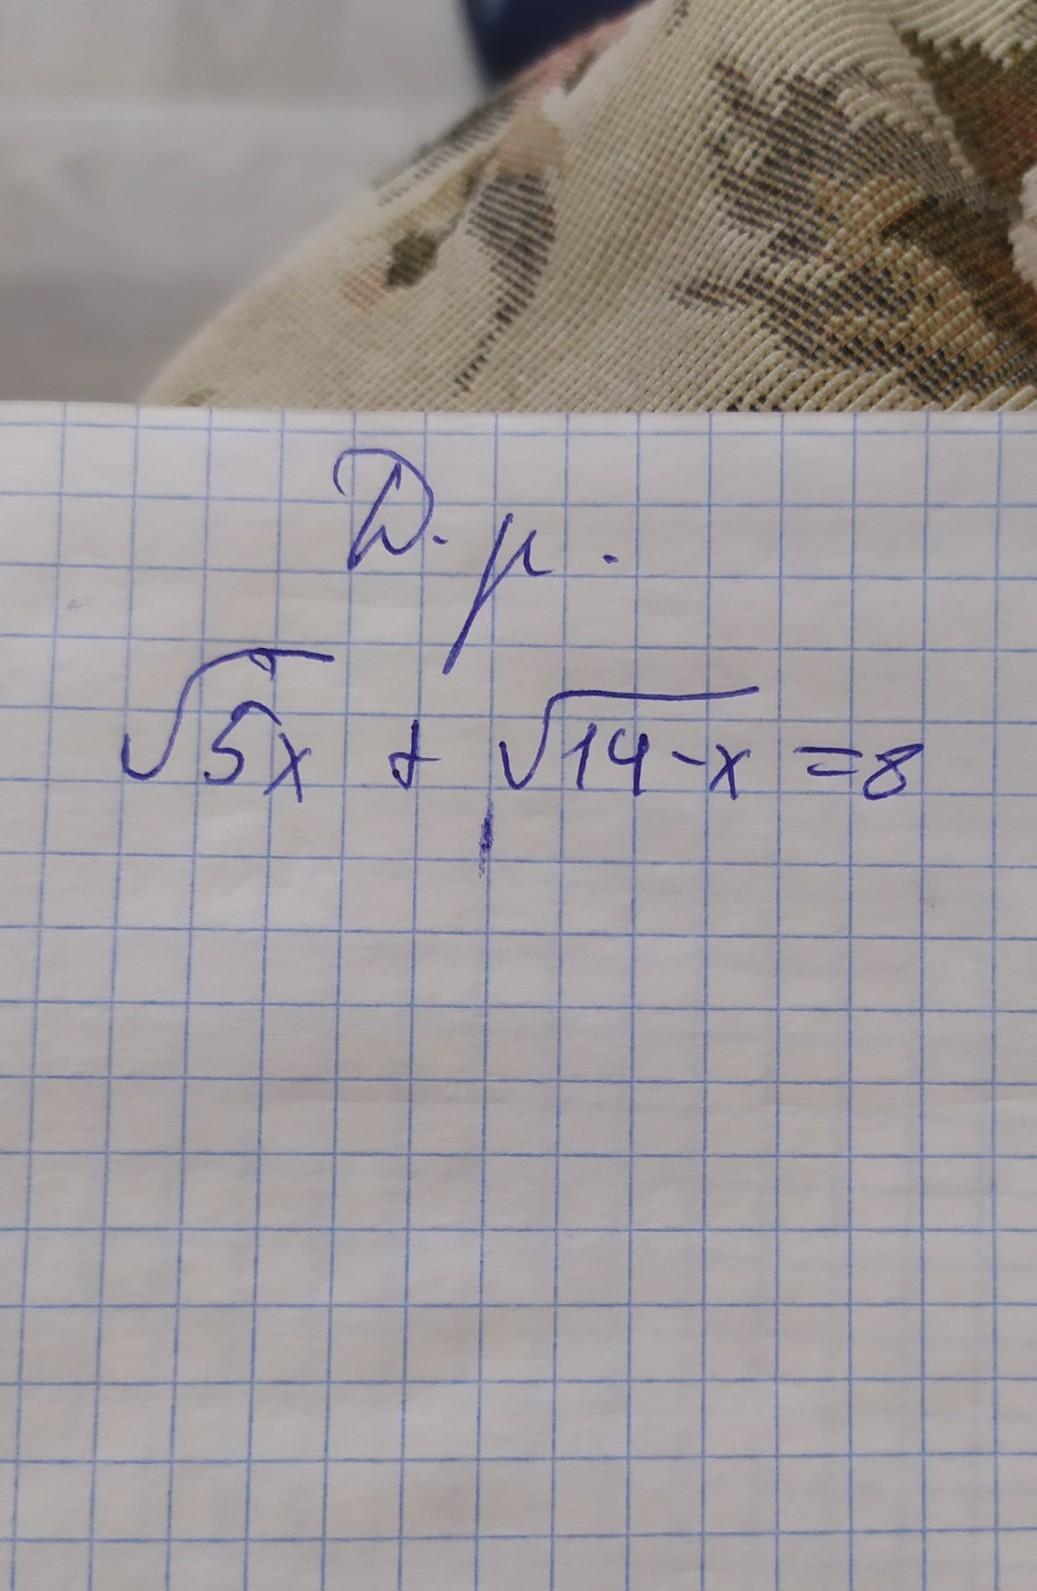 D. р.
√5x + √14-x = 8